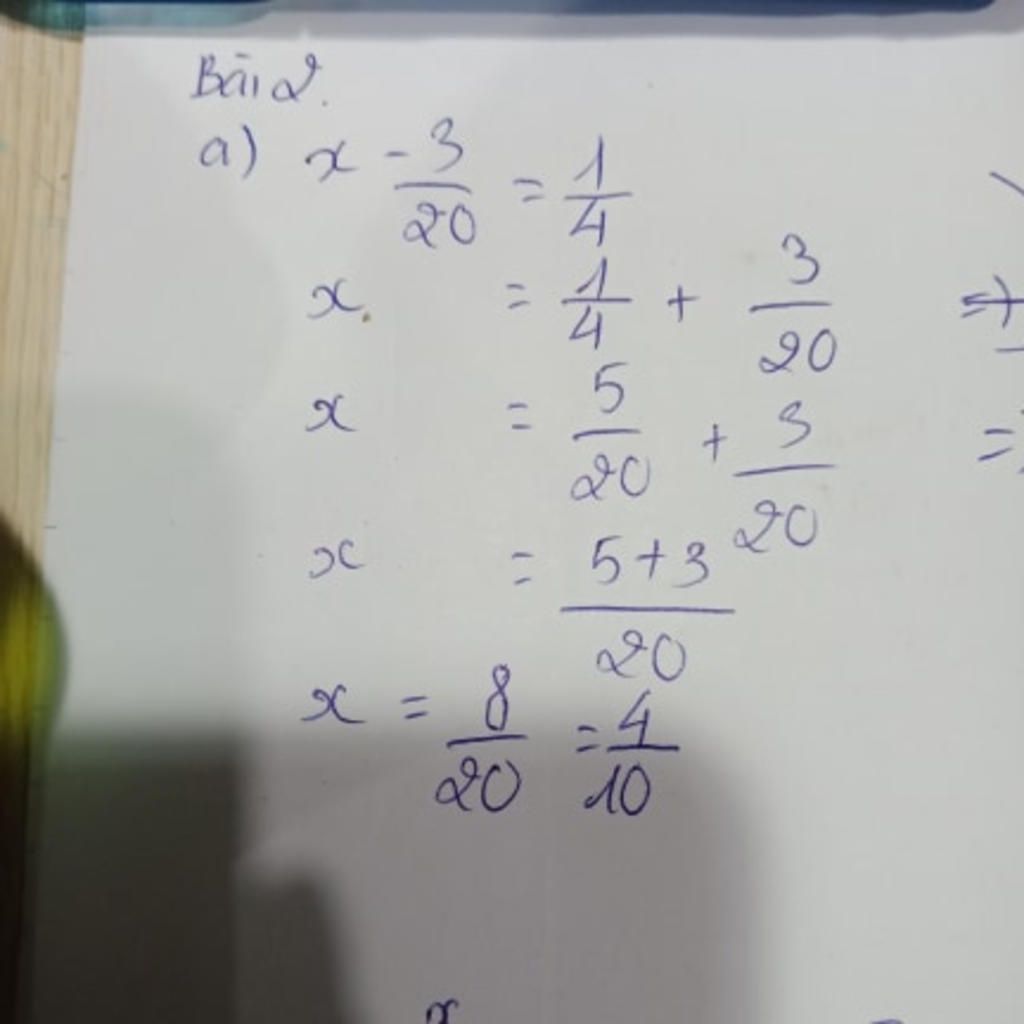 Bài 2.
a) x - 3/20 = 1/4
x. = 1/4 + 3/20 =>
x = 5/20 + 3/20 =
x = 5+3/20
x = 8/20 = 4/10
x